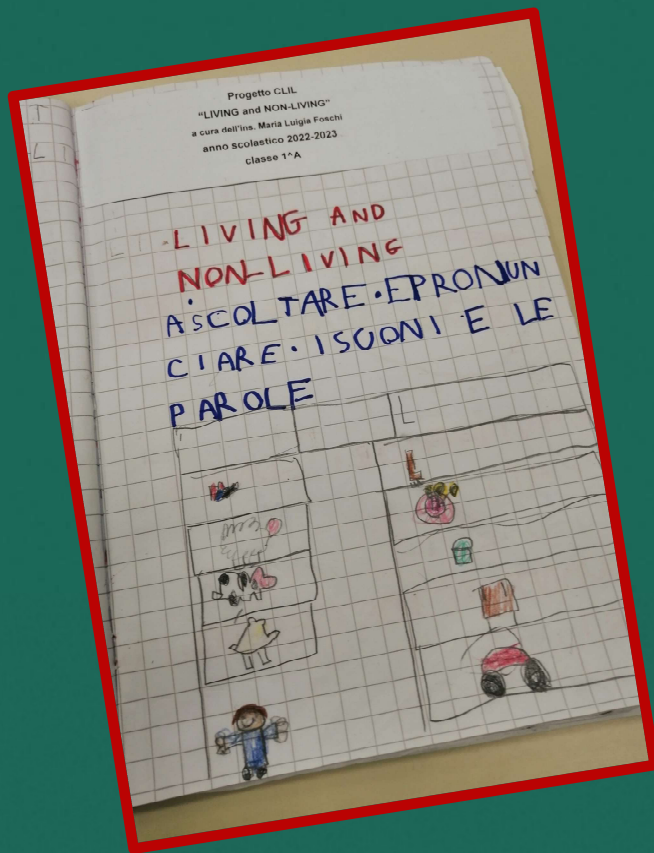 Progetto CLIL
"LIVING and NON-LIVING"
a cura dell'ins. Maria Luigia Foschi
anno scolastico 2022-2023
classe 1^A
LIVING AND
NON-LIVING
ASCOLTARE. EPRONUN
CIARE. ISUONI E LE
PAROLE
L